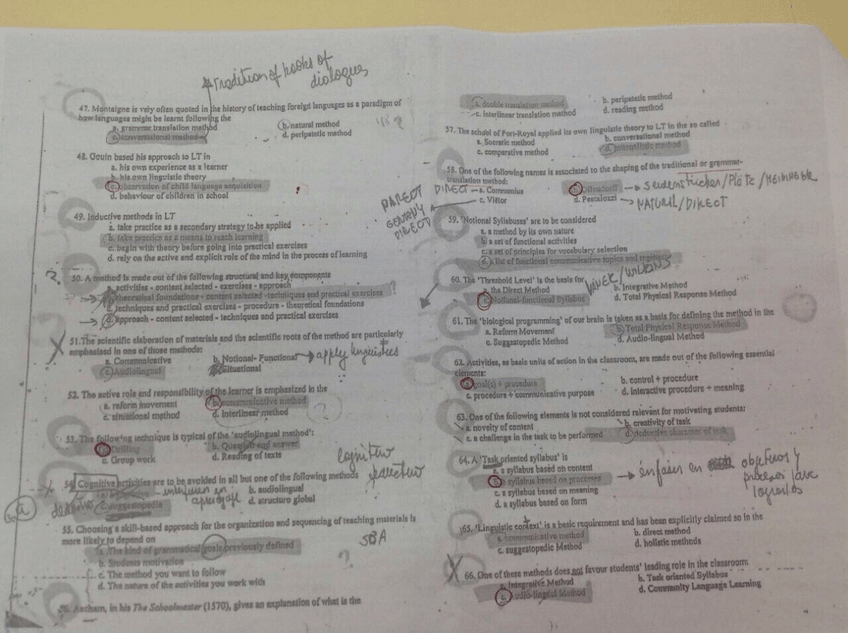 *Tradition of books of
dialogues
47. Montaigne is very often quoted in the history of teaching foreign languages as a paradigm of
how languages might be learnt following the
a. grammar translation method
b. natural method
c. conversational method
d. peripatetic method
48. Gouin based his approach to LT in
a. his own experience as a learner
b. his own linguistic theory
c. observation of child language acquisition
d. behaviour of children in school
49. Inductive methods in LT
a. take practice as a secondary strategy to be applied
b. take practice as a means to reach learning
c. begin with theory before going into practical exercises
d. rely on the active and explicit role of the mind in the process of learning
50. A method is made out of the following structural and key components
a. activities - content selected - exercises - approach
b. theoretical foundations - content selected - techniques and practical exercises
c. techniques and practical exercises - procedure - theoretical foundations
d. approach - content selected - techniques and practical exercises
51. The scientific elaboration of materials and the scientific roots of the method are particularly
emphasised in one of those methods:
a. Communicative
b. Notional- Functional
apply linguistics
c. Audiolingual
d. Situational
52. The active role and responsibility of the learner is emphasized in the
a. reform movement
b. communicative method
c. situational method
d. interlinear method
53. The following technique is typical of the 'audiolingual method':
a. Drilling
b. Question and answer
c. Group work
d. Reading of texts
cognitive
54. Cognitive activities are to be avoided in all but one of the following methods
b. audiolingual
c. suggestopedia
d. structuro global
55. Choosing a skill-based approach for the organization and sequencing of teaching materials is
more likely to depend on
SBA
a. The kind of grammatical goals previously defined
b. Students motivation
c. The method you want to follow
d. The nature of the activities you work with
56. Ascham, in his The Schoolmaster (1570), gives an explanation of what is the
a. double translation method
b. peripatetic method
c. interlinear translation method
d. reading method
57. The school of Port-Royal applied its own linguistic theory to LT in the so called
a. Socratic method
b. conversational method
c. comparative method
58. One of the following names is associated to the shaping of the traditional or grammar-
translation method:
DIRECT
a. Comenius
b. Ollendorff
→ Seidenstücker/Plötz/MEIDINGER
c. Viëtor
d. Pestalozzi
→ NATURAL/DIRECT
59. 'Notional Syllabuses' are to be considered
a. a method by its own nature
b. a set of functional activities
c. a set of principles for vocabulary selection
d. a list of functional communicative topics and
60. The 'Threshold Level' is the basis for
a. the Direct Method
b. Integrative Method
c. Notional-functional Syllabus
d. Total Physical Response Method
61. The 'biological programming' of our brain is taken as a basis for defining the method in the
a. Reform Movement
b. Total Physical Response Method
c. Suggestopedic Method
d. Audio-lingual Method
62. Activities, as basic units of action in the classroom, are made out of the following essential
elements:
a. goal(s) + procedure
b. control + procedure
c. procedure + communicative purpose
d. interactive procedure + meaning
63. One of the following elements is not considered relevant for motivating students:
a. novelty of content
b. creativity of task
c. a challenge in the task to be performed
64. A 'Task oriented syllabus' is
a. a syllabus based on content
b. a syllabus based on processes
→ enfasis en objetivos y
c. a syllabus based on meaning
d. a syllabus based on form
65. 'Linguistic context' is a basic requirement and has been explicitly claimed so in the
a. communicative method
b. direct method
c. suggestopedic Method
d. holistic methods
66. One of these methods does not favour students' leading role in the classroom:
a. Integrative Method
b. Task oriented Syllabus
c. Audio-lingual Method
d. Community Language Learning